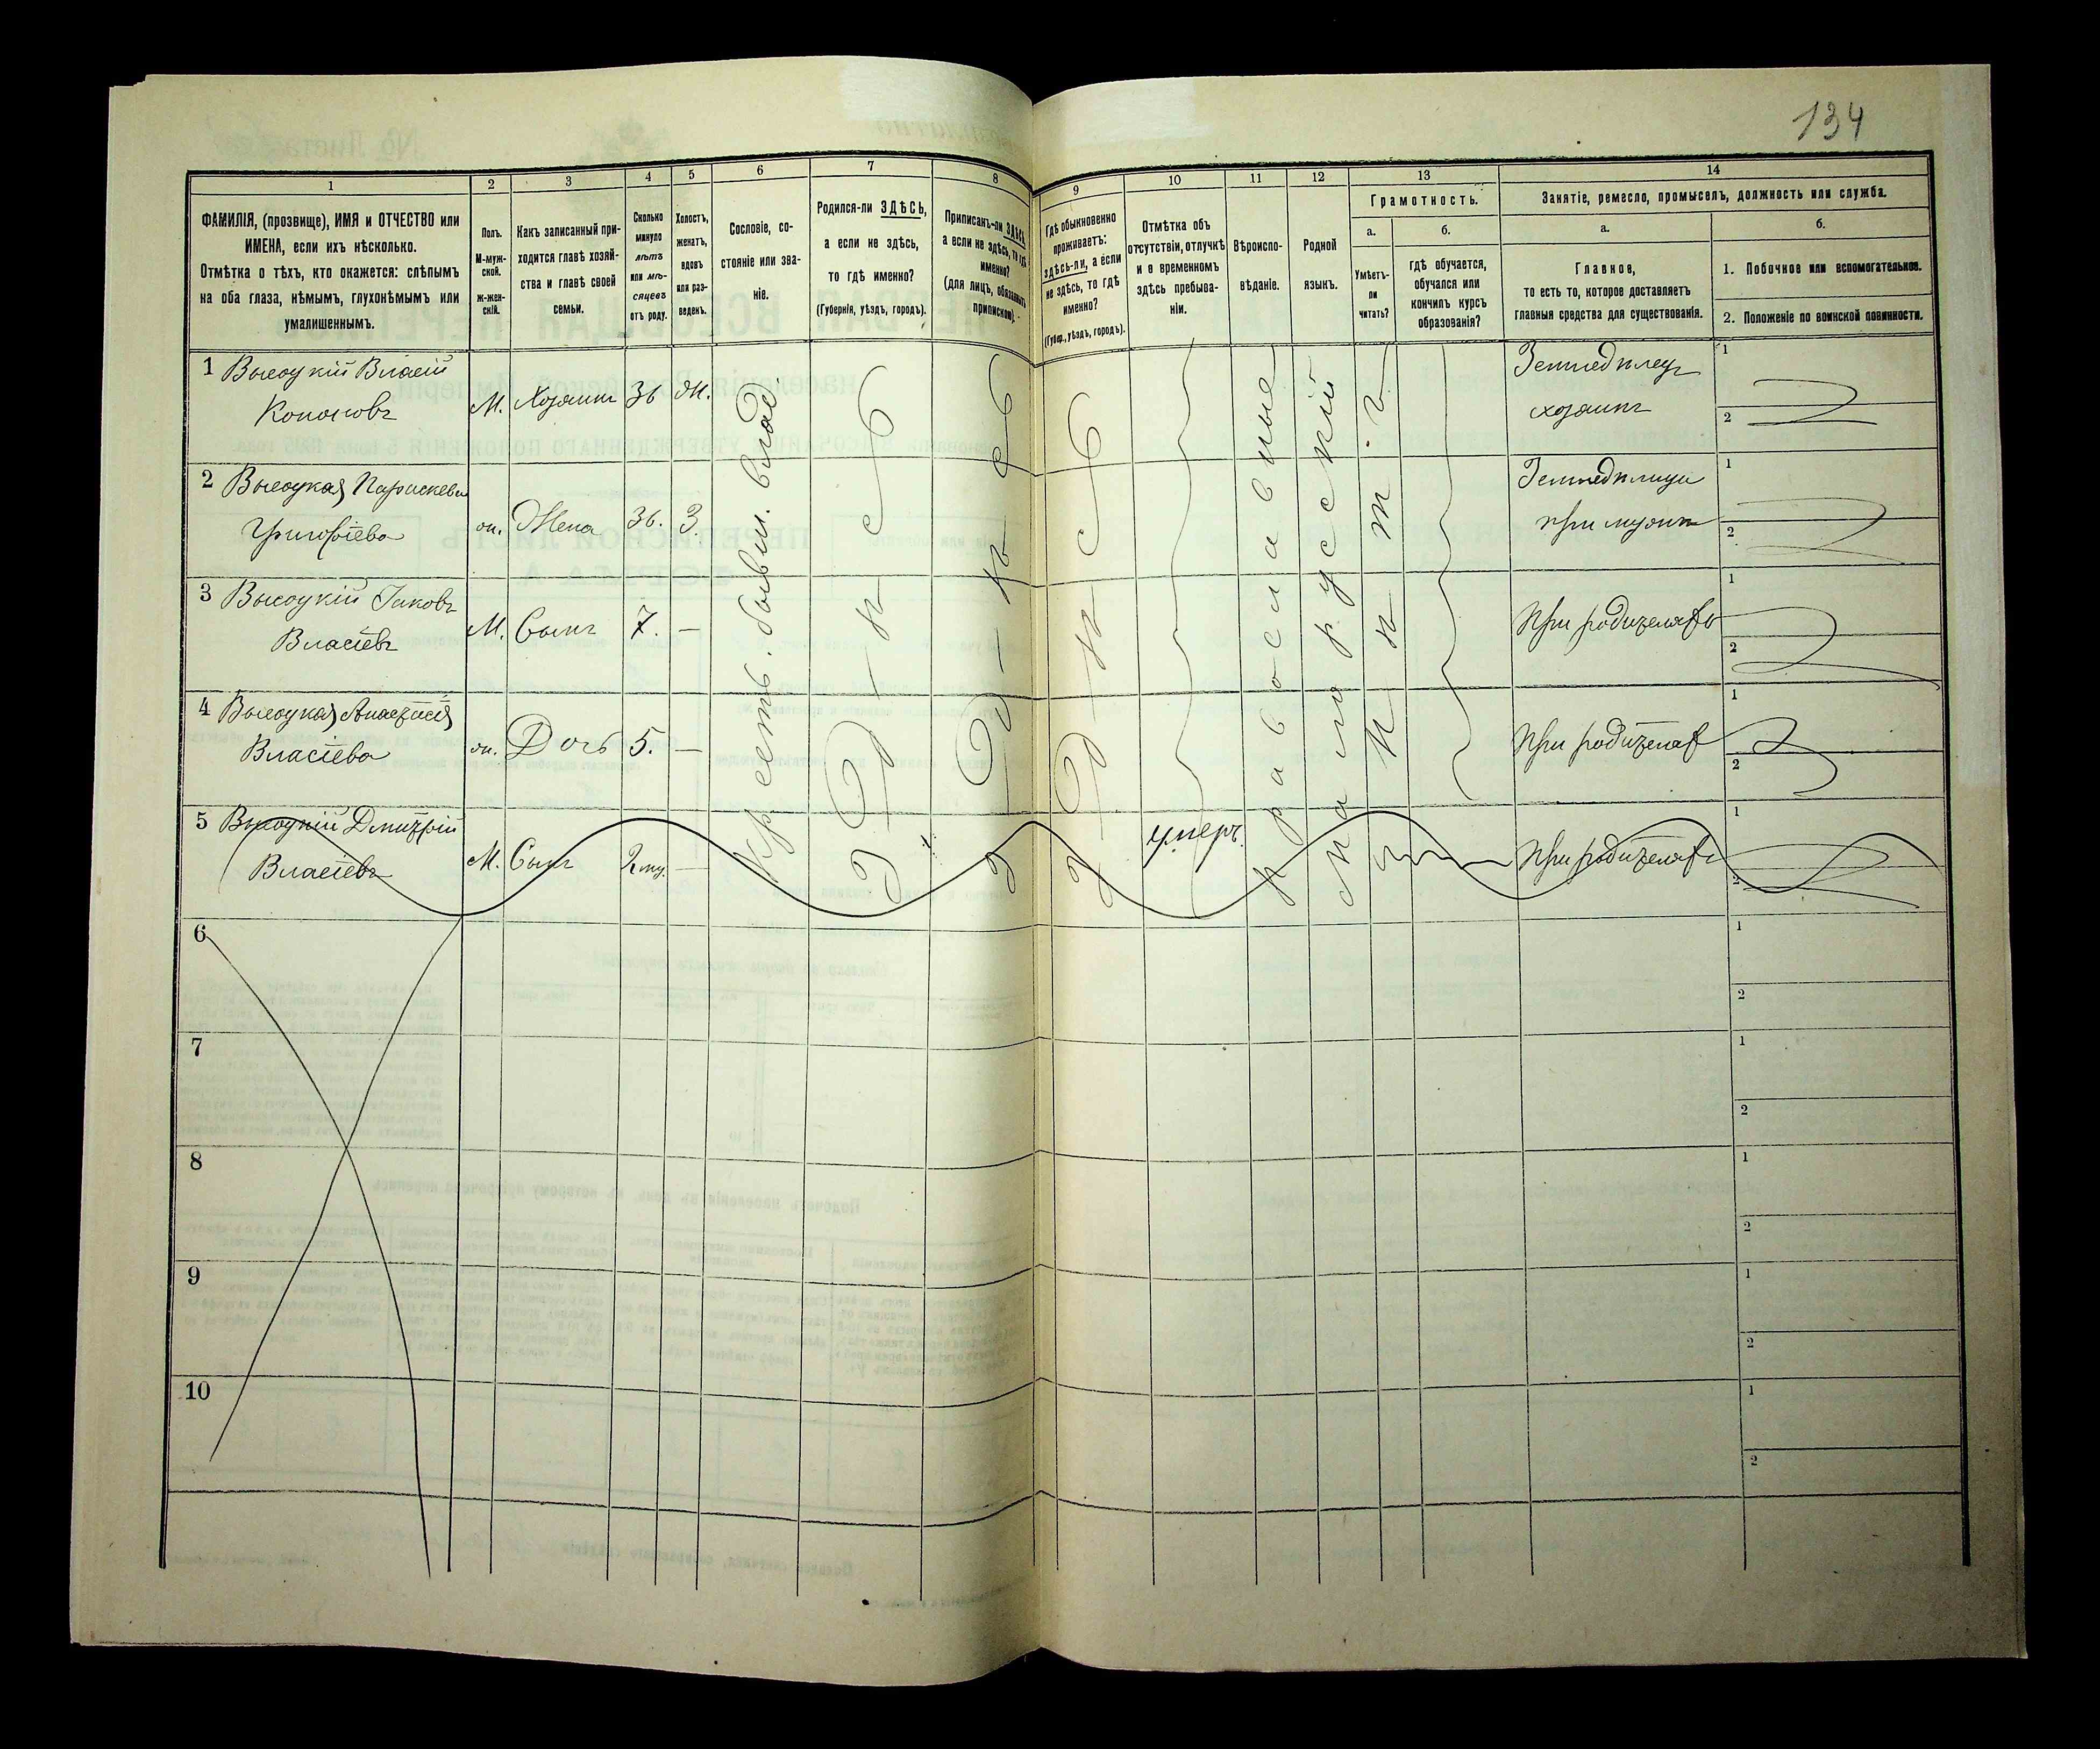 134
1
2
3
4
5
6
7
8
9
10
11
12
13
14
ФАМИЛІЯ, (прозвище), ИМЯ и ОТЧЕСТВО или
ИМЕНА, если ихъ нѣсколько.
Отмѣтка о тѣхъ, кто окажется: слѣпымъ
на оба глаза, нѣмымъ, глухонѣмымъ или
умалишеннымъ.
Полъ.
М-муж-
ской.
ж-жен-
скій.
Какъ записанный при-
ходится главѣ хозяй-
ства и главѣ своей
семьи.
Сколько
минуло
лѣтъ
или мѣ-
сяцевъ
отъ роду.
Холостъ,
женатъ,
вдовъ
или раз-
веденъ.
Сословіе, со-
стояніе или зва-
ніе.
Родился-ли ЗДѢСЬ,
а если не здѣсь,
то гдѣ именно?
(Губернія, уѣздъ, городъ).
Приписанъ-ли ЗДѢСЬ,
а если не здѣсь, то гдѣ
именно?
(для лицъ, обязанныхъ
припискою).
Гдѣ обыкновенно
проживаетъ:
здѣсь-ли, а если
не здѣсь, то гдѣ
именно?
(Губер., уѣздъ, городъ).
Отмѣтка объ
отсутствіи, отлучкѣ
и о временномъ
здѣсь пребыва-
ніи.
Вѣроиспо-
вѣданіе.
Родной
языкъ.
Грамотность.
а.
Умѣетъ-
ли
читать?
б.
гдѣ обучается,
обучался или
кончилъ курсъ
образованія?
Занятіе, ремесло, промыселъ, должность или служба.
а.
Главное,
то есть то, которое доставляетъ
главныя средства для существованія.
б.
1. Побочное или вспомогательное.
2. Положеніе по воинской повинности.
1 Высоцкій Власій
Кононовъ
М. Хозяинъ 36 Ж.
Земледѣлецъ
хозяинъ
1
2
2 Высоцкая Параскева
Григоріева
ж. Жена 36. З.
при мужѣ
1
2
3 Высоцкій Іаковъ
Власіевъ
М. Сынъ 7. —
При родителяхъ
1
2
4 Высоцкая Анастасія
Власіева
ж. Дочь 5. —
При родителях
1
2
5 Высоцкій Дмитрій
Власіевъ
М. Сынъ —
умеръ
При родителяхъ
1
2
Крест. бывш. влад.
З д ѣ с ь
З д ѣ с ь
З д ѣ с ь
Православные
Малорусскій
6
1
2
7
1
2
8
1
2
9
1
2
10
1
2